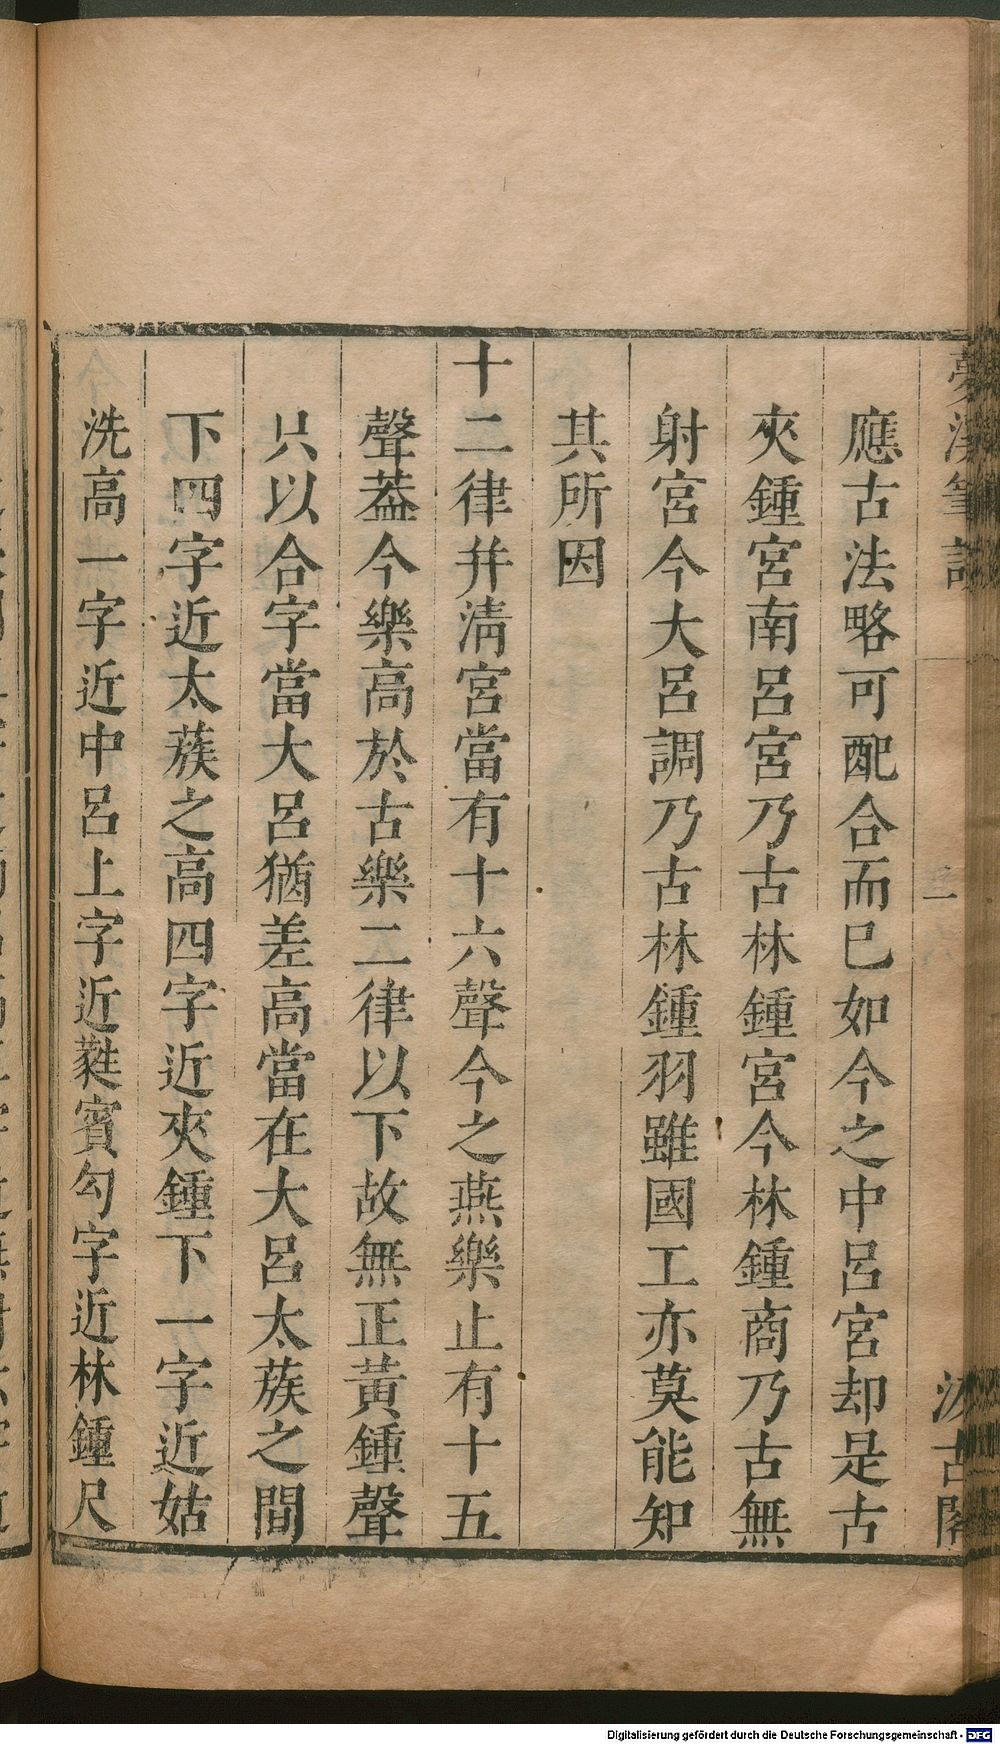 夢溪筆談
二
汲古閣
應古法略可配合而巳如今之中呂宮却是古
夾鍾宮南呂宮乃古林鍾宮今林鍾商乃古無
射宮今大呂調乃古林鍾羽雖國工亦莫能知
其所因
十二律并清宮當有十六聲今之燕樂止有十五
聲葢今樂高於古樂二律以下故無正黃鍾聲
只以合字當大呂猶差高當在大呂太蔟之間
下四字近太蔟之高四字近夾鍾下一字近姑
洗高一字近中呂上字近蕤賓勾字近林鍾尺
Digitalisierung gefördert durch die Deutsche Forschungsgemeinschaft - DFG